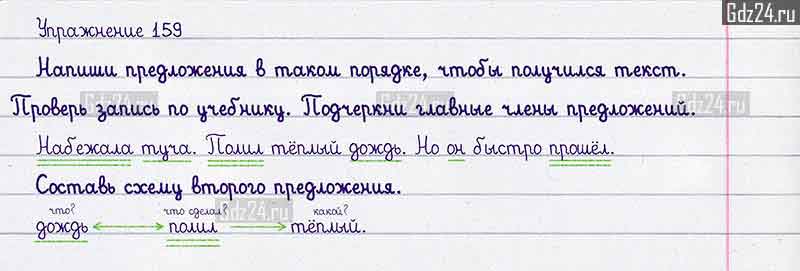 Gdz24.ru
Упражнение 159
Напиши предложения в таком порядке, чтобы получился текст.
Проверь запись по учебнику. Подчеркни главные члены предложений.
Gdz24.ru Gdz24.ru Gdz24.ru
Набежала туча. Полил тёплый дождь. Но он быстро прошёл.
Составь схему второго предложения.
что? что сделал? какой?
Gdz24.ru
дождь полил тёплый.